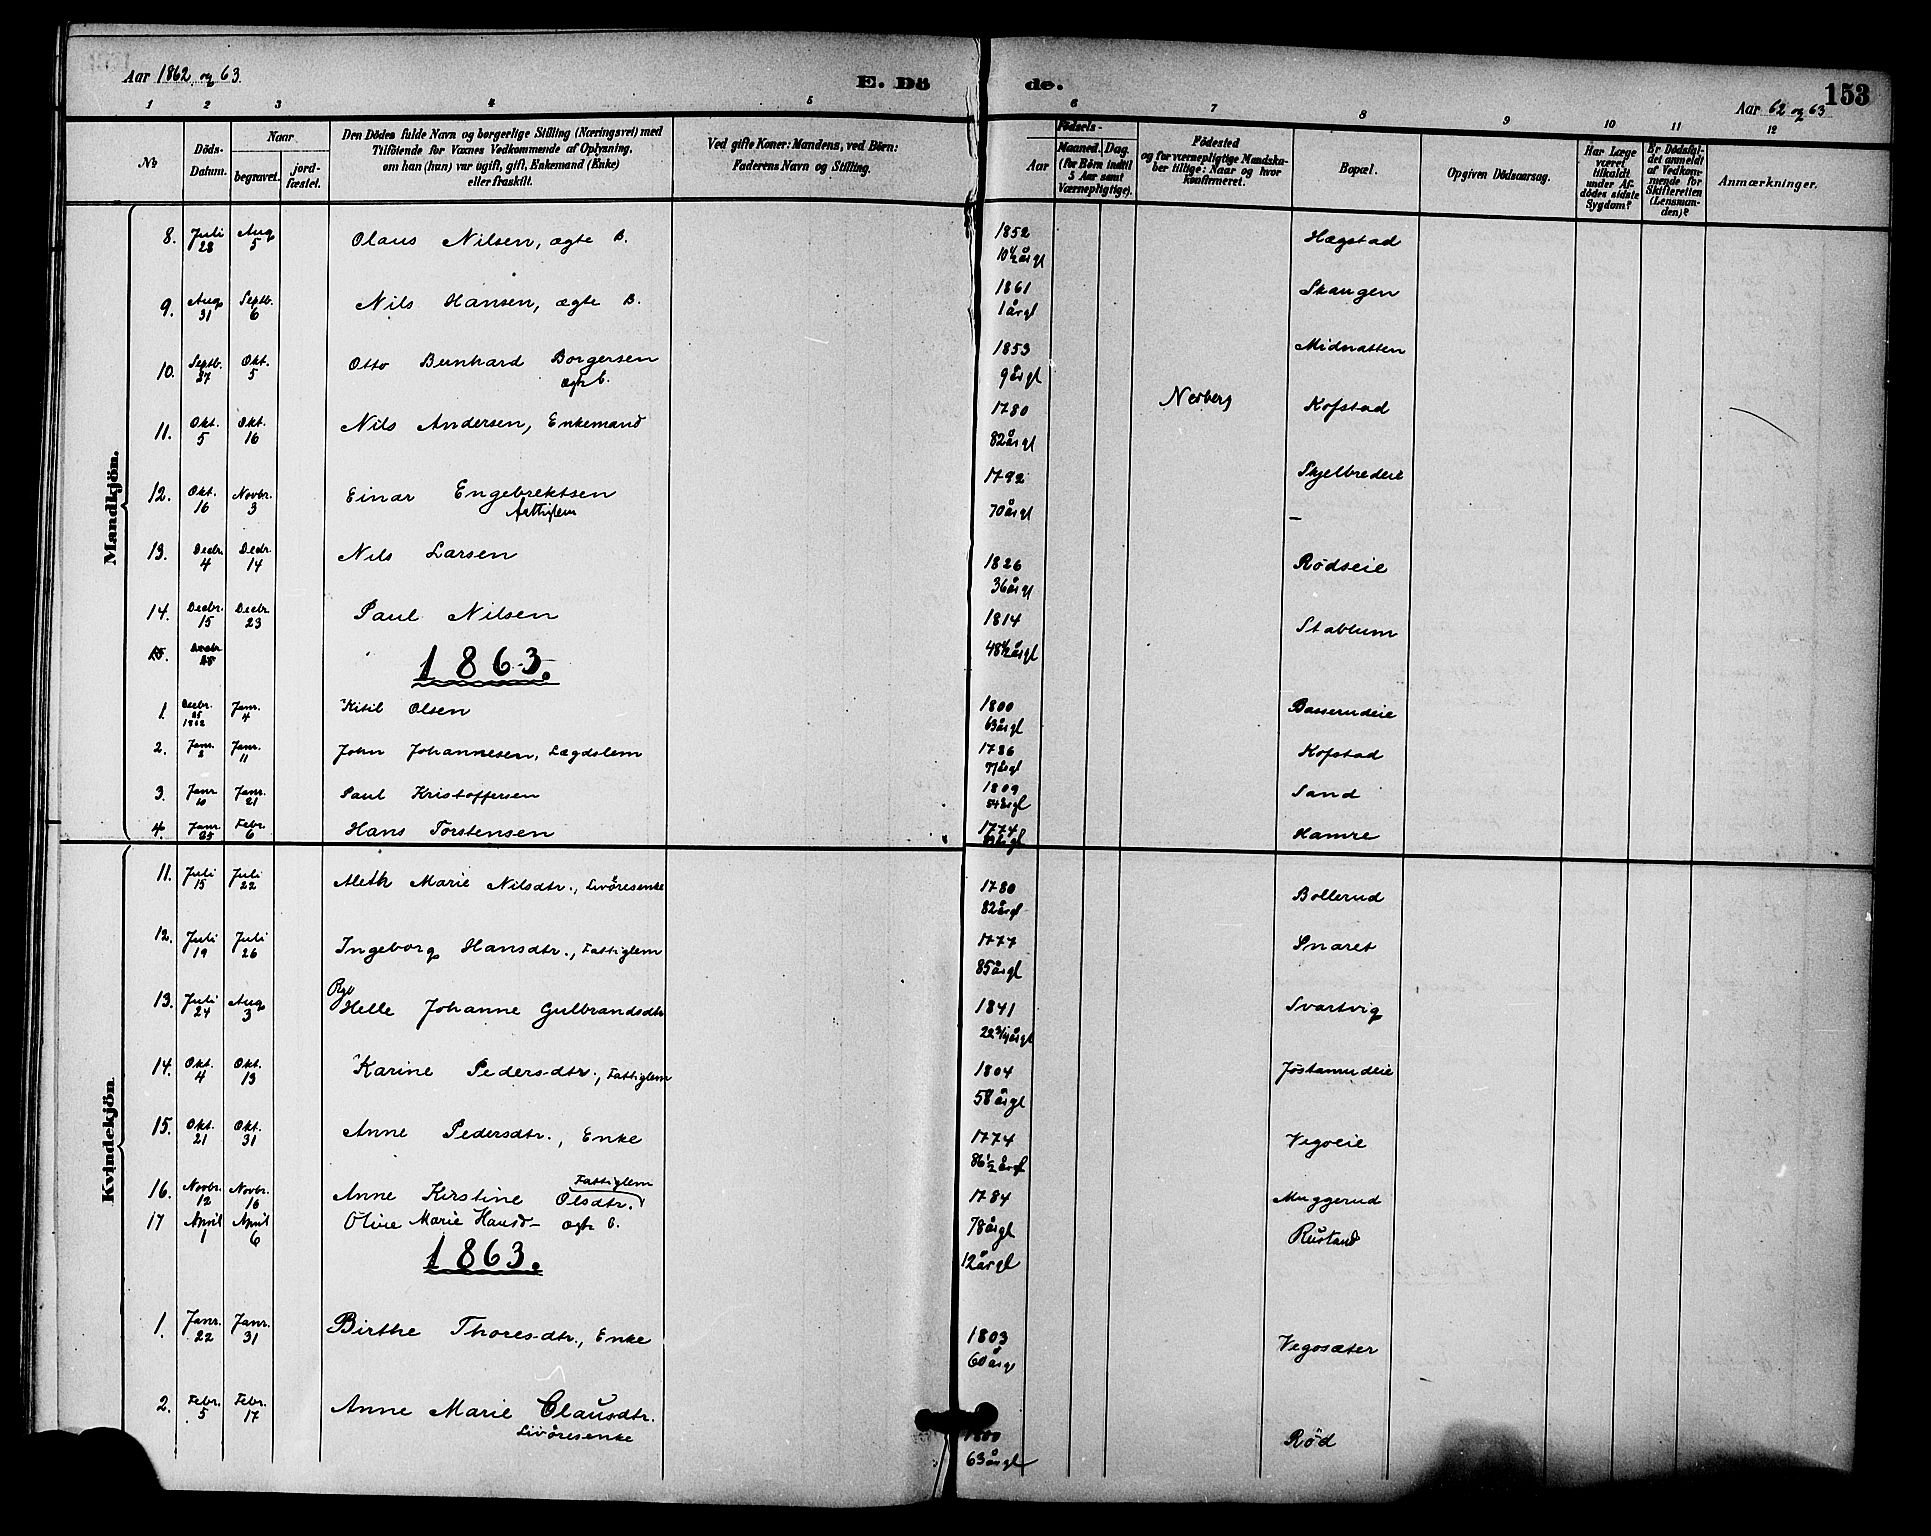 Aar 1862 og 63.
E. Dö
de.
153
Aar 62 og 63
1 2 3 4 5 6 7 8 9 10 11 12
No
Döds-Datum.
Naar
begravet.
jord-fæstet.
Den Dödes fulde Navn og borgerlige Stilling (Næringsvei) med
Tilföiende for Voxnes Vedkommende af Oplysning,
om han (hun) var ugift, gift, Enkemand (Enke)
eller fraskilt.
Ved gifte Koner: Mandens, ved Börn:
Faderens Navn og Stilling.
Födsels-
Aar
Maaned. Dag.
(for Börn indtil
5 Aar samt
Værnepligtige).
Födested
og for værnepligtige Mandska-
ber tillige: Naar og hvor
konfirmeret.
Bopæl.
Opgiven Dödsaarsag.
Har Læge
været
tilkaldt
under Af-
dödes sidste
Sygdom?
Er Dödsfal-
det anmeldt
af Vedkom-
mende for
Skifteretten
(Lensman-
den)?
Anmærkninger.
Mandkjön.
8. Juli 28 Aug 5 Olaus Nilsen, ægte B. 1852 10 1/2 årgl Hægstad
9. Aug 31 Septb. 6 Nils Hansen, ægte B. 1861 1 årgl Skaugen
10. Septb. 27 Okt. 5 Otto Bernhard Borgersen ægte B. 1853 9 årgl Midnatten
11. Okt. 5 Okt. 16 Nils Andersen, Enkemand 1780 82 årgl Nerberg Kofstad
12. Okt. 16 Novbr. 3 Einar Engebrektsen Fattiglem 1792 70 årgl Skjelbredeie –
13. Decbr. 4 Decbr. 14 Nils Larsen 1826 36 årgl Rödseie
14. Decbr. 15 Decbr. 23 Paul Nilsen 1814 48 1/2 årgl Stablum
15. Decbr. 25
1863.
1. Decbr. 25 1862 Janr. 4 Kitil Olsen 1800 63 årgl Basserudeie
2. Janr. 2 Janr. 11 John Johannesen, Lægdslem 1786 77 årgl Kofstad
3. Janr. 10 Janr. 21 Paul Kristoffersen 1809 54 årgl Sand
4. Janr. 25 Febr. 6 Hans Torstensen 1774 årgl Hamre
Kvindekjön.
11. Juli 15 Juli 22 Aleth Marie Nilsdtr., Livöresenke 1780 82 årgl Bollerud
12. Juli 19 Juli 26 Ingeborg Hansdtr., Fattiglem 1777 85 årgl Snaret
13. Juli 24 Aug 3 Helle Johanne Gulbrandsdtr 1841 22 3/4 årgl Svartvig
14. Okt. 4 Okt. 13 Karine Pedersdtr., Fattiglem 1804 58 årgl Jöstamudeie
15. Okt. 21 Okt. 31 Anne Pedersdtr., Enke 1774 86 1/2 årgl Vegoeie
16. Novbr. 12 Novbr. 16 Anne Kirstine Olsdtr. Fattiglem 1784 78 årgl Muggerud
17 April 1 April 6 Oline Marie Hansd– ægte B. 12 årgl Rustand
1863.
1. Janr. 22 Janr. 31 Birthe Thoresdtr., Enke 1803 60 årgl Vegosæter
2. Febr. 5 Febr. 17 Anne Marie Clausdtr. Livöresenke 1800 63 årgl Röd